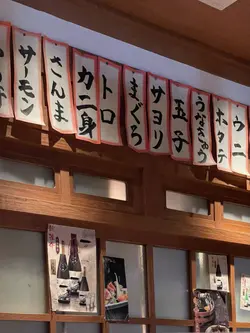 サーモン
さんま
カニ身
トロ
まぐろ
サヨリ
玉子
うなきゅう
ホタテ
ウニ